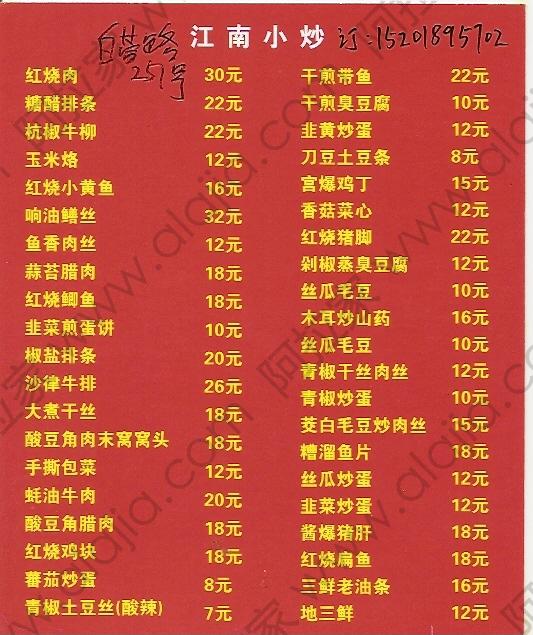 自带酒
251号
江南小炒 订:15201895702
红烧肉 30元
糟醋排条 22元
杭椒牛柳 22元
玉米烙 12元
红烧小黄鱼 16元
响油鳝丝 32元
鱼香肉丝 12元
蒜苔腊肉 18元
红烧鲫鱼 18元
韭菜煎蛋饼 10元
椒盐排条 20元
沙律牛排 26元
大煮干丝 18元
酸豆角肉末窝窝头 18元
手撕包菜 12元
蚝油牛肉 20元
酸豆角腊肉 18元
红烧鸡块 18元
蕃茄炒蛋 8元
青椒土豆丝(酸辣) 7元
干煎带鱼 22元
干煎臭豆腐 10元
韭黄炒蛋 12元
刀豆土豆条 8元
宫爆鸡丁 15元
香菇菜心 12元
红烧猪脚 22元
剁椒蒸臭豆腐 12元
丝瓜毛豆 10元
木耳炒山药 16元
丝瓜毛豆 10元
青椒干丝肉丝 12元
青椒炒蛋 10元
茭白毛豆炒肉丝 15元
糟溜鱼片 18元
丝瓜炒蛋 12元
韭菜炒蛋 12元
酱爆猪肝 18元
红烧扁鱼 18元
三鲜老油条 16元
地三鲜 12元
阿拉家 www.alajia.com